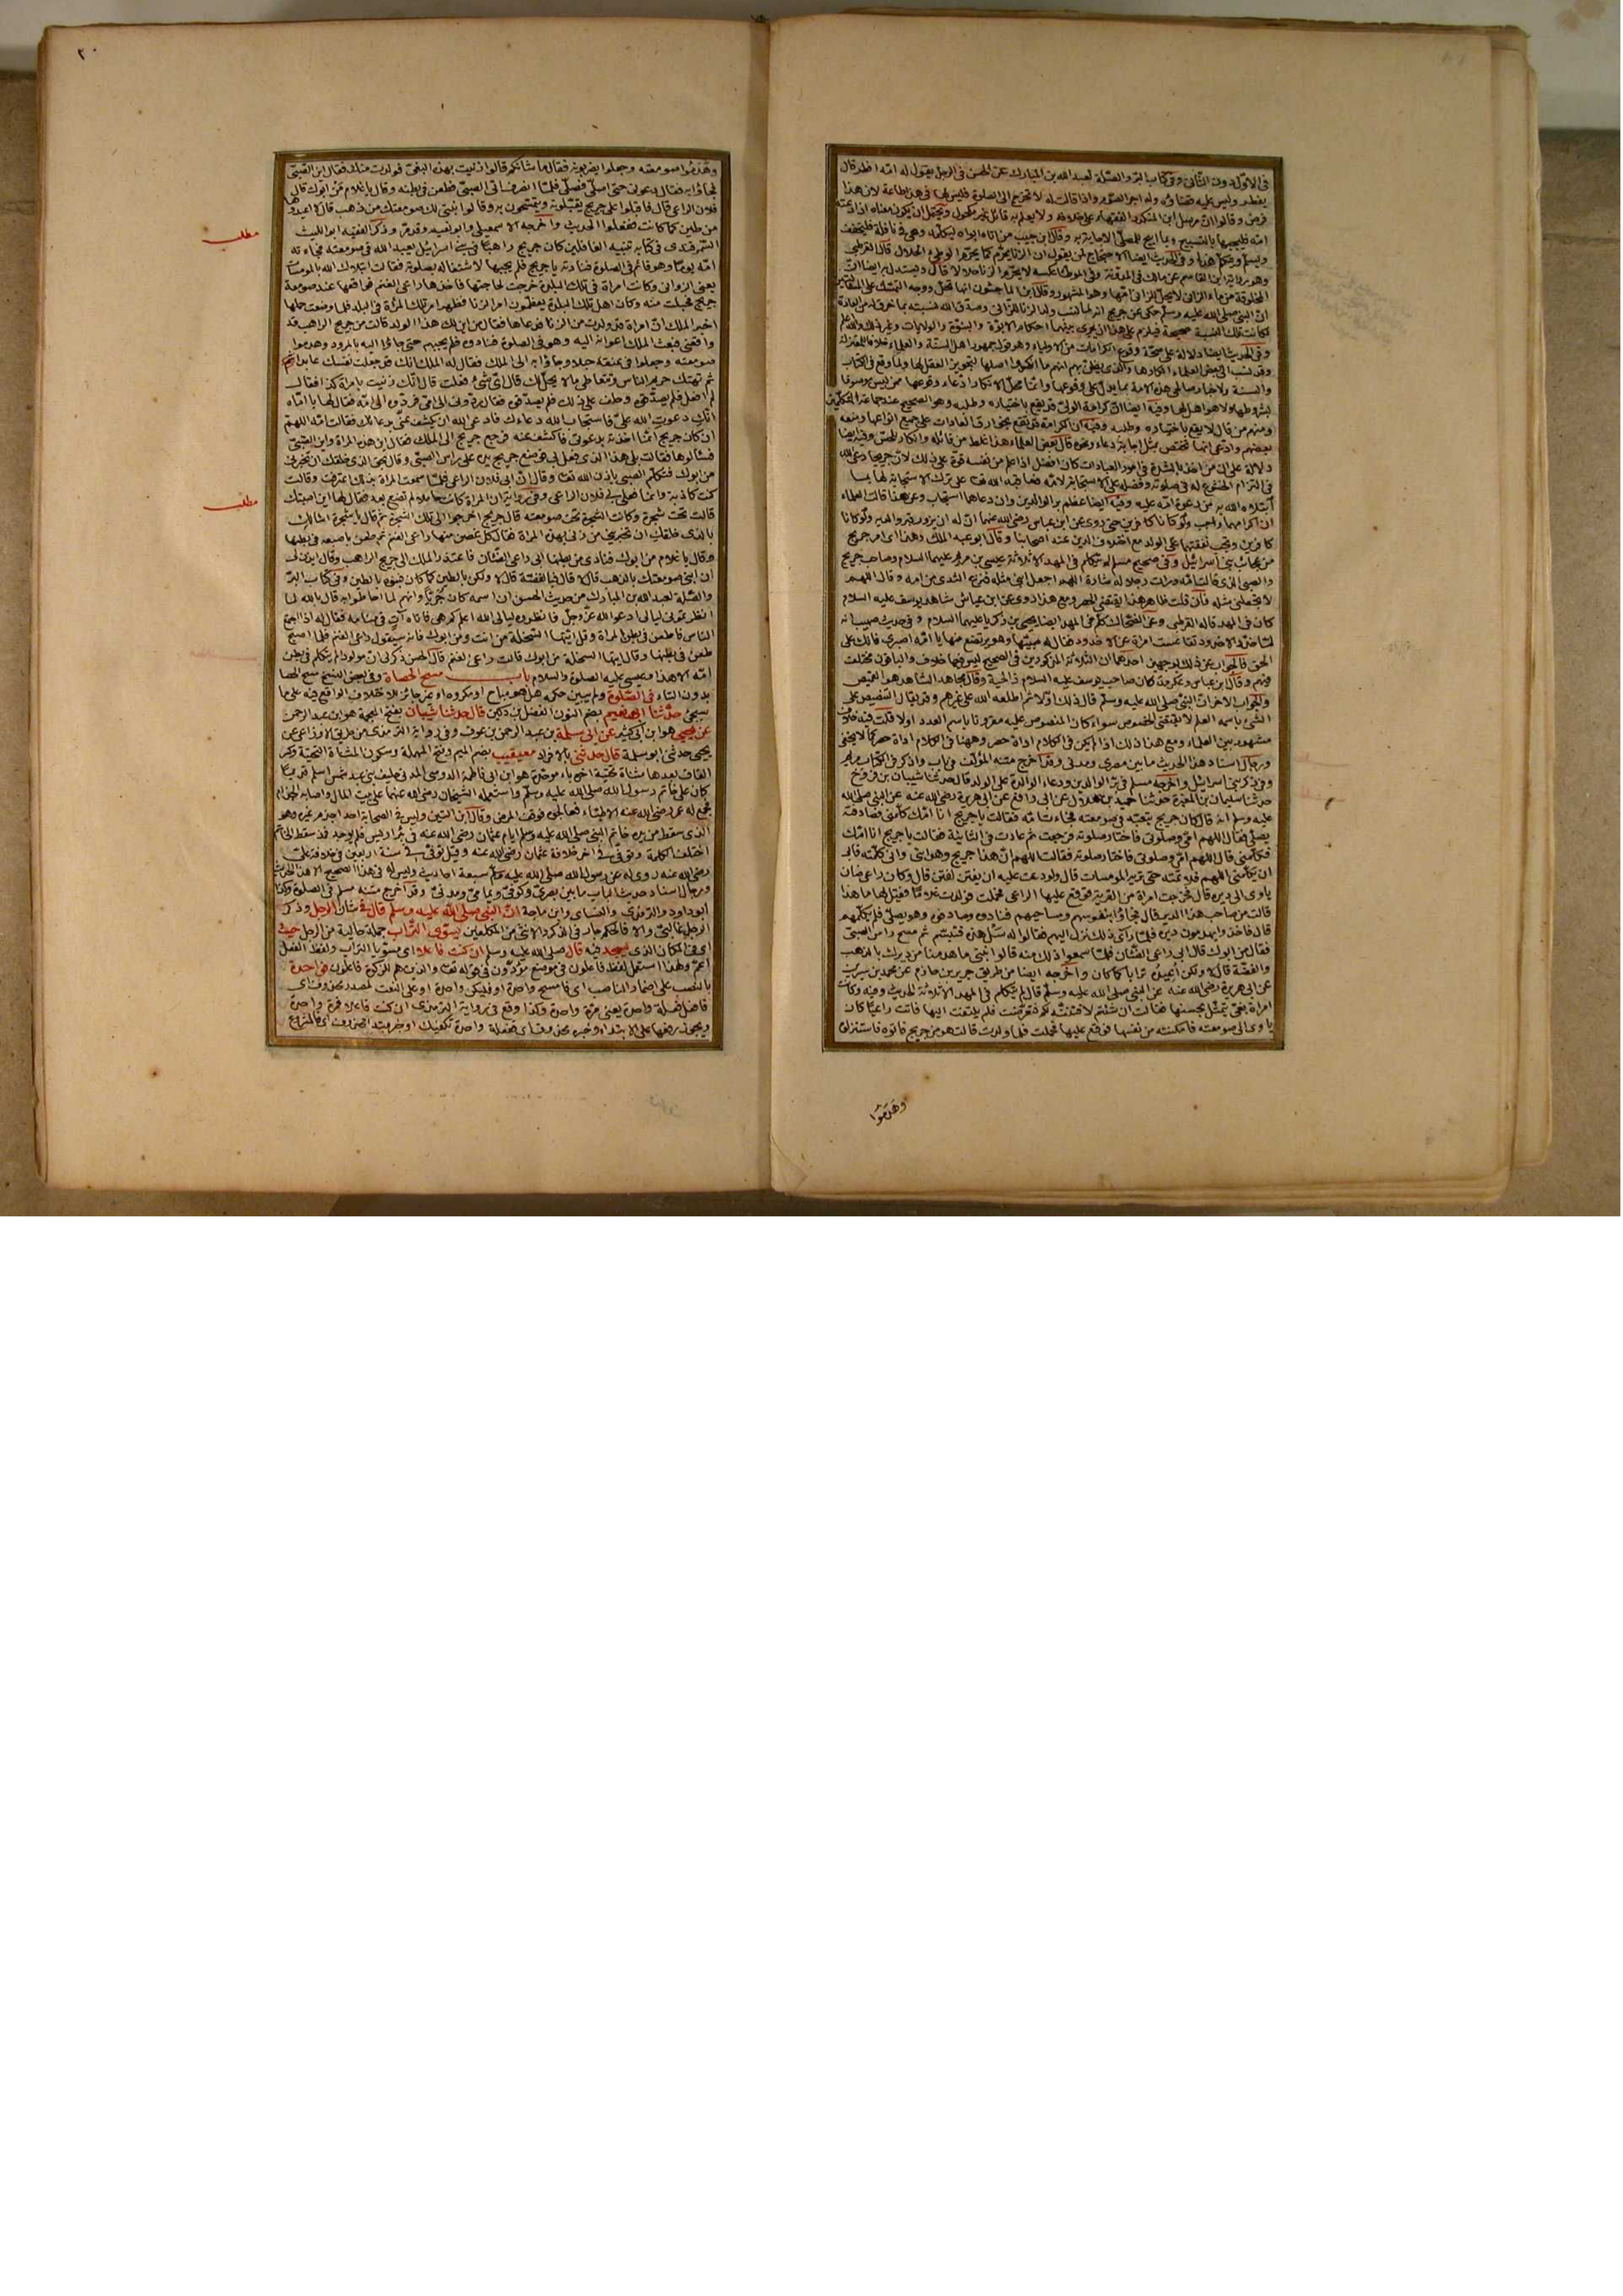 في الاول دون الثاني وفي كتاب البر والصلة لعبد الله بن المبارك عن الحسن في الرجل يقول له امه افطر قال
يفطر وليس عليه قضاؤه وله اجر الصوم واذا قالت له لا تخرج الى الصلوة فليس لها في هذا طاعة لان هذا
فرض وقالوا ان مرسل ابن المنكدر الفقهاء على خلافه ولا يعلم به قائل غير مكحول ويحتمل ان يكون معناه اذا دعته
امه فليجبها بالتسبيح وبما ابيح للمصلي الاجابة به وقال ابن حبيب من اتاه ابواه ليكلماه وهو في نافلة فليخفف
ويسلم ويكلمهما وفي الحديث ايضا الاحتجاج لمن يقول ان الزنا يحرم كما يحرم الوطئ الحلال قال القرطبي
وهو رواية ابن القاسم عن مالك في المدونة وفي الموطأ عكسه لا يحرم الزنا حلالا قال ويستدل به ايضا ان
المخلوقة من ماء الزاني لا تحل للزاني بامها وهو المشهور وقال ابن الماجشون انها تحل ووجه التمسك على المسئلتين
ان النبي صلى الله عليه وسلم حكى عن جريج انه نسب ولد الزنا للزاني وصدق الله نسبته بما خرق له من العادة
فكانت تلك النسبة صحيحة فيلزم على هذا ان يجري بينهما احكام الابوة والبنوة والولايات وغير ذلك والله اعلم
وفي الحديث ايضا دلالة على صحة وقوع الكرامات من الاولياء وهو قول جمهور اهل السنة والعلماء خلافا للمعتزلة
وقد نسب الى بعض العلماء انكارها والذي يظن بهم انهم ما انكروا اصلها لتجويز العقل لها ولما وقع في الكتاب
والسنة واخبار صالحي هذه الامة بما يدل على وقوعها وانما محل الانكار ادعاء وقوعها ممن ليس موصوفا
بشروطها ولا هو اهل لها وفيه ايضا ان كرامة الولي قد يقع باختياره وطلبه وهو الصحيح عند جماعة المتكلمين
ومنهم من قال لا يقع باختياره وطلبه وفيه ان الكرامة قد يقع بخوارق العادات على جميع انواعها ومنعه
بعضهم وادعى انها تختص بمثل اجابة دعاء ونحوه قال بعض العلماء هذا غلط من قائله وانكار للحس وفيه ايضا
دلالة على ان من اخذ بالشدة في امور العبادات كان افضل اذا علم من نفسه قوة على ذلك لان جريجا دعى الله
في التزام الخشوع له في صلوته وفضله على الاستجابة لامه فعاقبه الله تعالى على ترك الاستجابة لها بما
ابتلاه الله به من دعوة امه عليه وفيه ايضا عظم بر الوالدين وان دعاهما استجاب وعن هذا قالت العلماء
ان اكرامهما واجب ولو كانا كافرين حتى روى عن ابن عباس رضي الله عنهما ان له ان يزور قبر والديه ولو كانا
كافرين وتجب نفقتهما على الولد مع اختلاف الدين عند اصحابنا وقال ابو عبد الملك وهذا اى امر جريج
من عجائب بني اسرائيل وفي صحيح مسلم لم يتكلم في المهد الا ثلاثة عيسى بن مريم عليهما السلام وصاحب جريج
والصبي الذي قالت امه ورات رجلا له شارة اللهم اجعل ابني مثله فترك الثدي من امه وقال اللهم
لا تجعلني مثله فان قلت ظاهر هذا يقتضي الحصر ومع هذا روى عن ابن عباس شاهد يوسف عليه السلام
كان في المهد قاله القرطبي وعن الضحاك تكلم في المهد ايضا يحيى بن زكريا عليهما السلام وفي حديث صهيب انه
لما خدد الاخدود تقاعست امراة عن الاخدود فقال لها صبيها وهو يرتضع منها يا امه اصبري فانك على
الحق فالجواب عن ذلك بوجهين احدهما ان الثلاثة المذكورين في الصحيح ليس فيها خلاف والباقون مختلف
فيهم وقال ابن عباس وعكرمة كان صاحب يوسف عليه السلام ذا لحية وقال مجاهد الشاهد هو القميص
والجواب الاخر ان النبي صلى الله عليه وسلم قال ذلك اولا ثم اطلعه الله على غيرهم وقد يقال التنصيص على
الشئ باسمه العلم لا يقتضي الخصوص سواء كان المنصوص عليه مقرونا باسم العدد او لا قلت فيه خلاف
مشهور بين العلماء ومع هذا ذلك اذا لم يكن في الكلام اداة حصر وههنا في الكلام اداة حصر كما لا يخفى
ورجال اسناد هذا الحديث ما بين مصري ومدني وقد اخرج متنه المؤلف في باب واذكر في الكتاب مريم
وفي ذكر بني اسرائيل واخرجه مسلم في بر الوالدين ودعاء الوالدة على الولد قال حدثنا شيبان بن فروخ
حدثنا سليمان بن المغيرة حدثنا حميد بن هلال عن ابي رافع عن ابي هريرة رضي الله عنه عن النبي صلى الله
عليه وسلم انه قال كان جريج يتعبد في صومعته فجاءت امه فقالت يا جريج انا امك كلمني فصادفته
يصلي فقال اللهم امي وصلوتي فاختار صلوته فرجعت ثم عادت في الثانية فقالت يا جريج انا امك
فكلمني قال اللهم امي وصلوتي فاختار صلوته فقالت اللهم ان هذا جريج وهو ابني واني كلمته فابى
ان يكلمني اللهم فلا تمته حتى تريه المومسات قال ولو دعت عليه ان يفتن لفتن قال وكان راعي ضان
ياوى الى ديره قال فخرجت امراة من القرية فوقع عليها الراعي فحملت فولدت غلاما فقيل لها ما هذا
قالت من صاحب هذا الدير قال فجاؤا بفؤسهم ومساحيهم فنادوه وصادفوه وهو يصلي فلم يكلمهم
قال فاخذوا يهدمون ديره فلما راى ذلك نزل اليهم فقالوا له سل هذه فتبسم ثم مسح راس الصبي
فقال من ابوك قال ابي راعي الضان فلما سمعوا ذلك منه قالوا نبني ما هدمنا من ديرك بالذهب
والفضة قال لا ولكن اعيدوه ترابا كما كان واخرجه ايضا من طريق جرير بن حازم عن محمد بن سيرين
عن ابي هريرة رضي الله عنه عن النبي صلى الله عليه وسلم قال لم يتكلم في المهد الا ثلاثة الحديث وفيه وكانت
امراة بغي يتمثل بحسنها فقالت ان شئتم لافتننه لكم فتعرضت فلم يلتفت اليها فاتت راعيا كان
ياوى الى صومعته فامكنته من نفسها فوقع عليها فحملت فلما ولدت قالت هو من جريج فاتوه فاستنزلوه
وهدموا
٢٠
وهدموا صومعته وجعلوا يضربونه فقال ما شانكم قالوا زنيت بهذه البغي فولدت منك فقال اين الصبي
فجاؤا به فقال دعوني حتى اصلي فصلى فلما انصرف اتى الصبي فطعن في بطنه وقال يا غلام من ابوك قال
فلان الراعي قال فاقبلوا على جريج يقبلونه ويتمسحون به وقالوا نبني لك صومعتك من ذهب قال لا اعيدوها
من طين كما كانت ففعلوا الحديث واخرجه الاسمعيلي وابو نعيم وذكر الفقيه ابو الليث
مطلب
السمرقندي في كتابه تنبيه الغافلين كان جريج راهبا في بني اسرائيل يعبد الله في صومعته فجاءته
امه يوما وهو قائم في الصلوة فنادته يا جريج فلم يجبها لاشتغاله بصلوته فقالت ابتلاك الله بالمومسات
يعني الزواني وكانت امراة في تلك البلدة خرجت لحاجتها فاخذها راعي الغنم فواقعها عند صومعة
جريج فحبلت منه وكان اهل تلك البلدة يعظمون امر الزنا فظهر امر تلك المرأة في البلد فلما وضعت حملها
اخبر الملك ان امراة قد ولدت من الزنا فدعاها فقال من اين لك هذا الولد قالت من جريج الراهب قد
واقعني فبعث الملك اعوانه اليه وهو في الصلوة فنادوه فلم يجبهم حتى جاؤا اليه بالمرود وهدموا
صومعته وجعلوا في عنقه حبلا وجاؤا به الى الملك فقال له الملك انك قد جعلت نفسك عابدا
ثم تهتك حريم الناس وتتعاطى ما لا يحل لك قال اي شئ فعلت قال انك زنيت بامراة كذا فقال
لم افعل فلم يصدقوه وحلف على ذلك فلم يصدقوه فقال ردوني الى امي فردوه الى امه فقال لها يا اماه
انك دعوت الله علي فاستجاب الله دعاءك فادعي الله ان يكشف عني بدعائك فقالت امه اللهم
ان كان جريج انما اخذته بدعوتي فاكشف عنه فرجع جريج الى الملك فقال اين هذه المراة واين الصبي
فسألوها فقالت بلى هذا الذي فعل بي فوضع جريج يده على راس الصبي وقال بحق الذي خلقك ان تخبرني
من ابوك فتكلم الصبي باذن الله تعالى وقال ان ابي فلان الراعي فلما سمعت المراة بذلك اعترفت وقالت
كنت كاذبة وانما فعل بي فلان الراعي وفي رواية ان المراة كانت حاملا لم تضع بعد فقال لها اين اصبتك
مطلب
قالت تحت شجرة وكانت الشجرة بجنب صومعته قال جريج اخرجوا الى تلك الشجرة ثم قال يا شجرة اسألك
بالذي خلقك ان تخبريني من زنى بهذه المراة فقال كل غصن منها راعي الغنم ثم طعن باصبعه في بطنها
وقال يا غلام من ابوك فنادى من بطنها ابي راعي الضان فاعتذر الملك الى جريج الراهب وقال ايذن لي
ان ابني صومعتك بالذهب قال لا قال فبالفضة قال لا ولكن بالطين كما كان فبنوه بالطين وفي كتاب البر
والصلة لعبد الله بن المبارك من حديث الحسن ان اسمه كان جريجا وانهم لما احاطوا به قال بالله لما
انظرتموني ليالي ادعو الله عز وجل فانظروه ليالي الله اعلم كم هي فاتاه آت في منامه فقال له اذا اجتمع
الناس فاطعن في بطن المراة وقل ايتها السخلة من انت ومن ابوك فانه سيقول راعي الغنم فلما اصبح
طعن في بطنها وقال ايتها السخلة من ابوك قالت راعي الغنم قال الحسن ذكر لي ان مولودا لم يتكلم في بطن
امه الا هذا وعيسى عليه الصلوة والسلام باب مسح الحصاة وفي بعض النسخ مسح الحصا
بدون التاء في الصلوة ولم يبين حكمه هل هو مباح او مكروه او غير جائز للاختلاف الواقع فيه على ما
سيجئ حدثنا ابو نعيم بضم النون الفضل بن دكين قال حدثنا شيبان بفتح المعجمة هو ابن عبد الرحمن
عن يحيى هو ابن ابي كثير عن ابي سلمة بن عبد الرحمن بن عوف وفي رواية الترمذي من طريق الاوزاعي عن
يحيى حدثني ابو سلمة قال حدثني بالافراد معيقيب بضم الميم وفتح المهملة وسكون المثناة التحتية وكسر
القاف بعدها مثناة تحتية اخره باء موحدة هو ابن ابي فاطمة الدوسي المدني حليف بني عبد شمس اسلم قديما
كان على خاتم رسول الله صلى الله عليه وسلم واستعمله الشيخان رضي الله عنهما على بيت المال واصابه الجذام
فجمع له عمر رضي الله عنه الاطباء فعالجوه فوقف المرض وقال ابن التين وليس في الصحابة احد اجذم غيره وهو
الذي سقط من يده خاتم النبي صلى الله عليه وسلم ايام عثمان رضي الله عنه في بئر اريس فلم يوجد فمذ سقط الخاتم
اختلفت الكلمة وتوفي في اخر خلافة عثمان رضي الله عنه وقيل توفي في سنة اربعين في خلافة علي
رضي الله عنه روى له عن رسول الله صلى الله عليه وسلم سبعة احاديث وليس له في هذا الصحيح الا هذا الحديث
ورجال اسناد حديث الباب ما بين بصري وكوفي ويمامي ومدني وقد اخرج متنه مسلم في الصلوة وكذا
ابو داود والترمذي والنسائي وابن ماجة ان النبي صلى الله عليه وسلم قال في شان الرجل وذكر
الرجل غالبي والا فالحكم جار في الذكر والانثى من المكلفين يسوي التراب جملة حالية من الرجل حيث
اي في المكان الذي يسجد فيه قال صلى الله عليه وسلم ان كنت فاعلا اي مسويا التراب ولفظ الفعل
اعم ولهذا استعمل لفظ فاعلون في موضع مؤدون في قوله تعالى والذين هم للزكوة فاعلون فواحدة
بالنصب على اضمار الناصب اي فامسح واحدة او فليكن واحدة او على النعت لمصدر محذوف اي
فافعل فعلة واحدة يعني مرة واحدة وكذا وقع في رواية الترمذي ان كنت فاعلا فمرة واحدة
ويجوز رفعها على الابتداء وخبره محذوف اي ففعلة واحدة تكفيك او خبر مبتدا محذوف اي فالمشروع